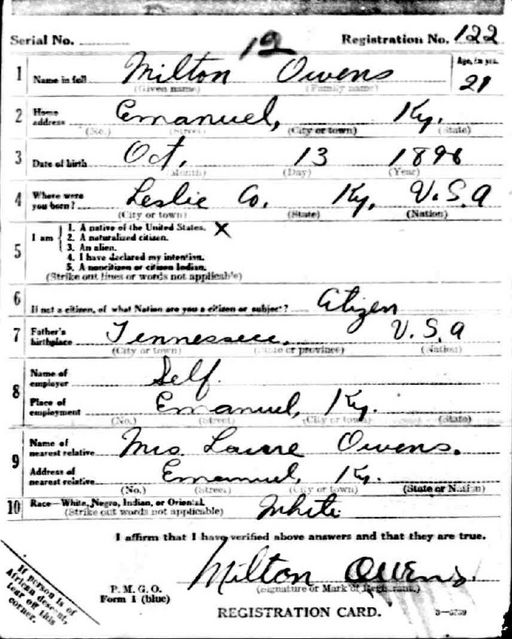 Serial No. 12 Registration No. 122
1 Name in full Milton Owens Age, in yrs. 21
(Given name) (Family name)
2 Home address Emanuel, Ky.
(No.) (Street) (City or town) (State)
3 Date of birth Oct. 13 1896
(Month) (Day) (Year)
4 Where were you born? Leslie Co. Ky. U.S.A
(City or town) (State) (Nation)
5 I am
1. A native of the United States. X
2. A naturalized citizen.
3. An alien.
4. I have declared my intention.
5. A noncitizen or citizen Indian.
(Strike out lines or words not applicable)
6 If not a citizen, of what Nation are you a citizen or subject? Citizen
7 Father's birthplace Tennessee U.S.A
(City or town) (State or province) (Nation)
8 Name of employer Self.
Place of employment Emanuel, Ky.
(No.) (Street) (City or town) (State)
9 Name of nearest relative Mrs. Owens.
Address of nearest relative Emanuel, Ky.
(No.) (Street) (City or town) (State or Nation)
10 Race—White, Negro, Indian, or Oriental. White
(Strike out words not applicable)
I affirm that I have verified above answers and that they are true.
Milton Owens.
P. M. G. O. (Signature or Mark of Registrant.)
Form 1 (blue)
REGISTRATION CARD.
If person is of
African descent,
tear off this
corner.